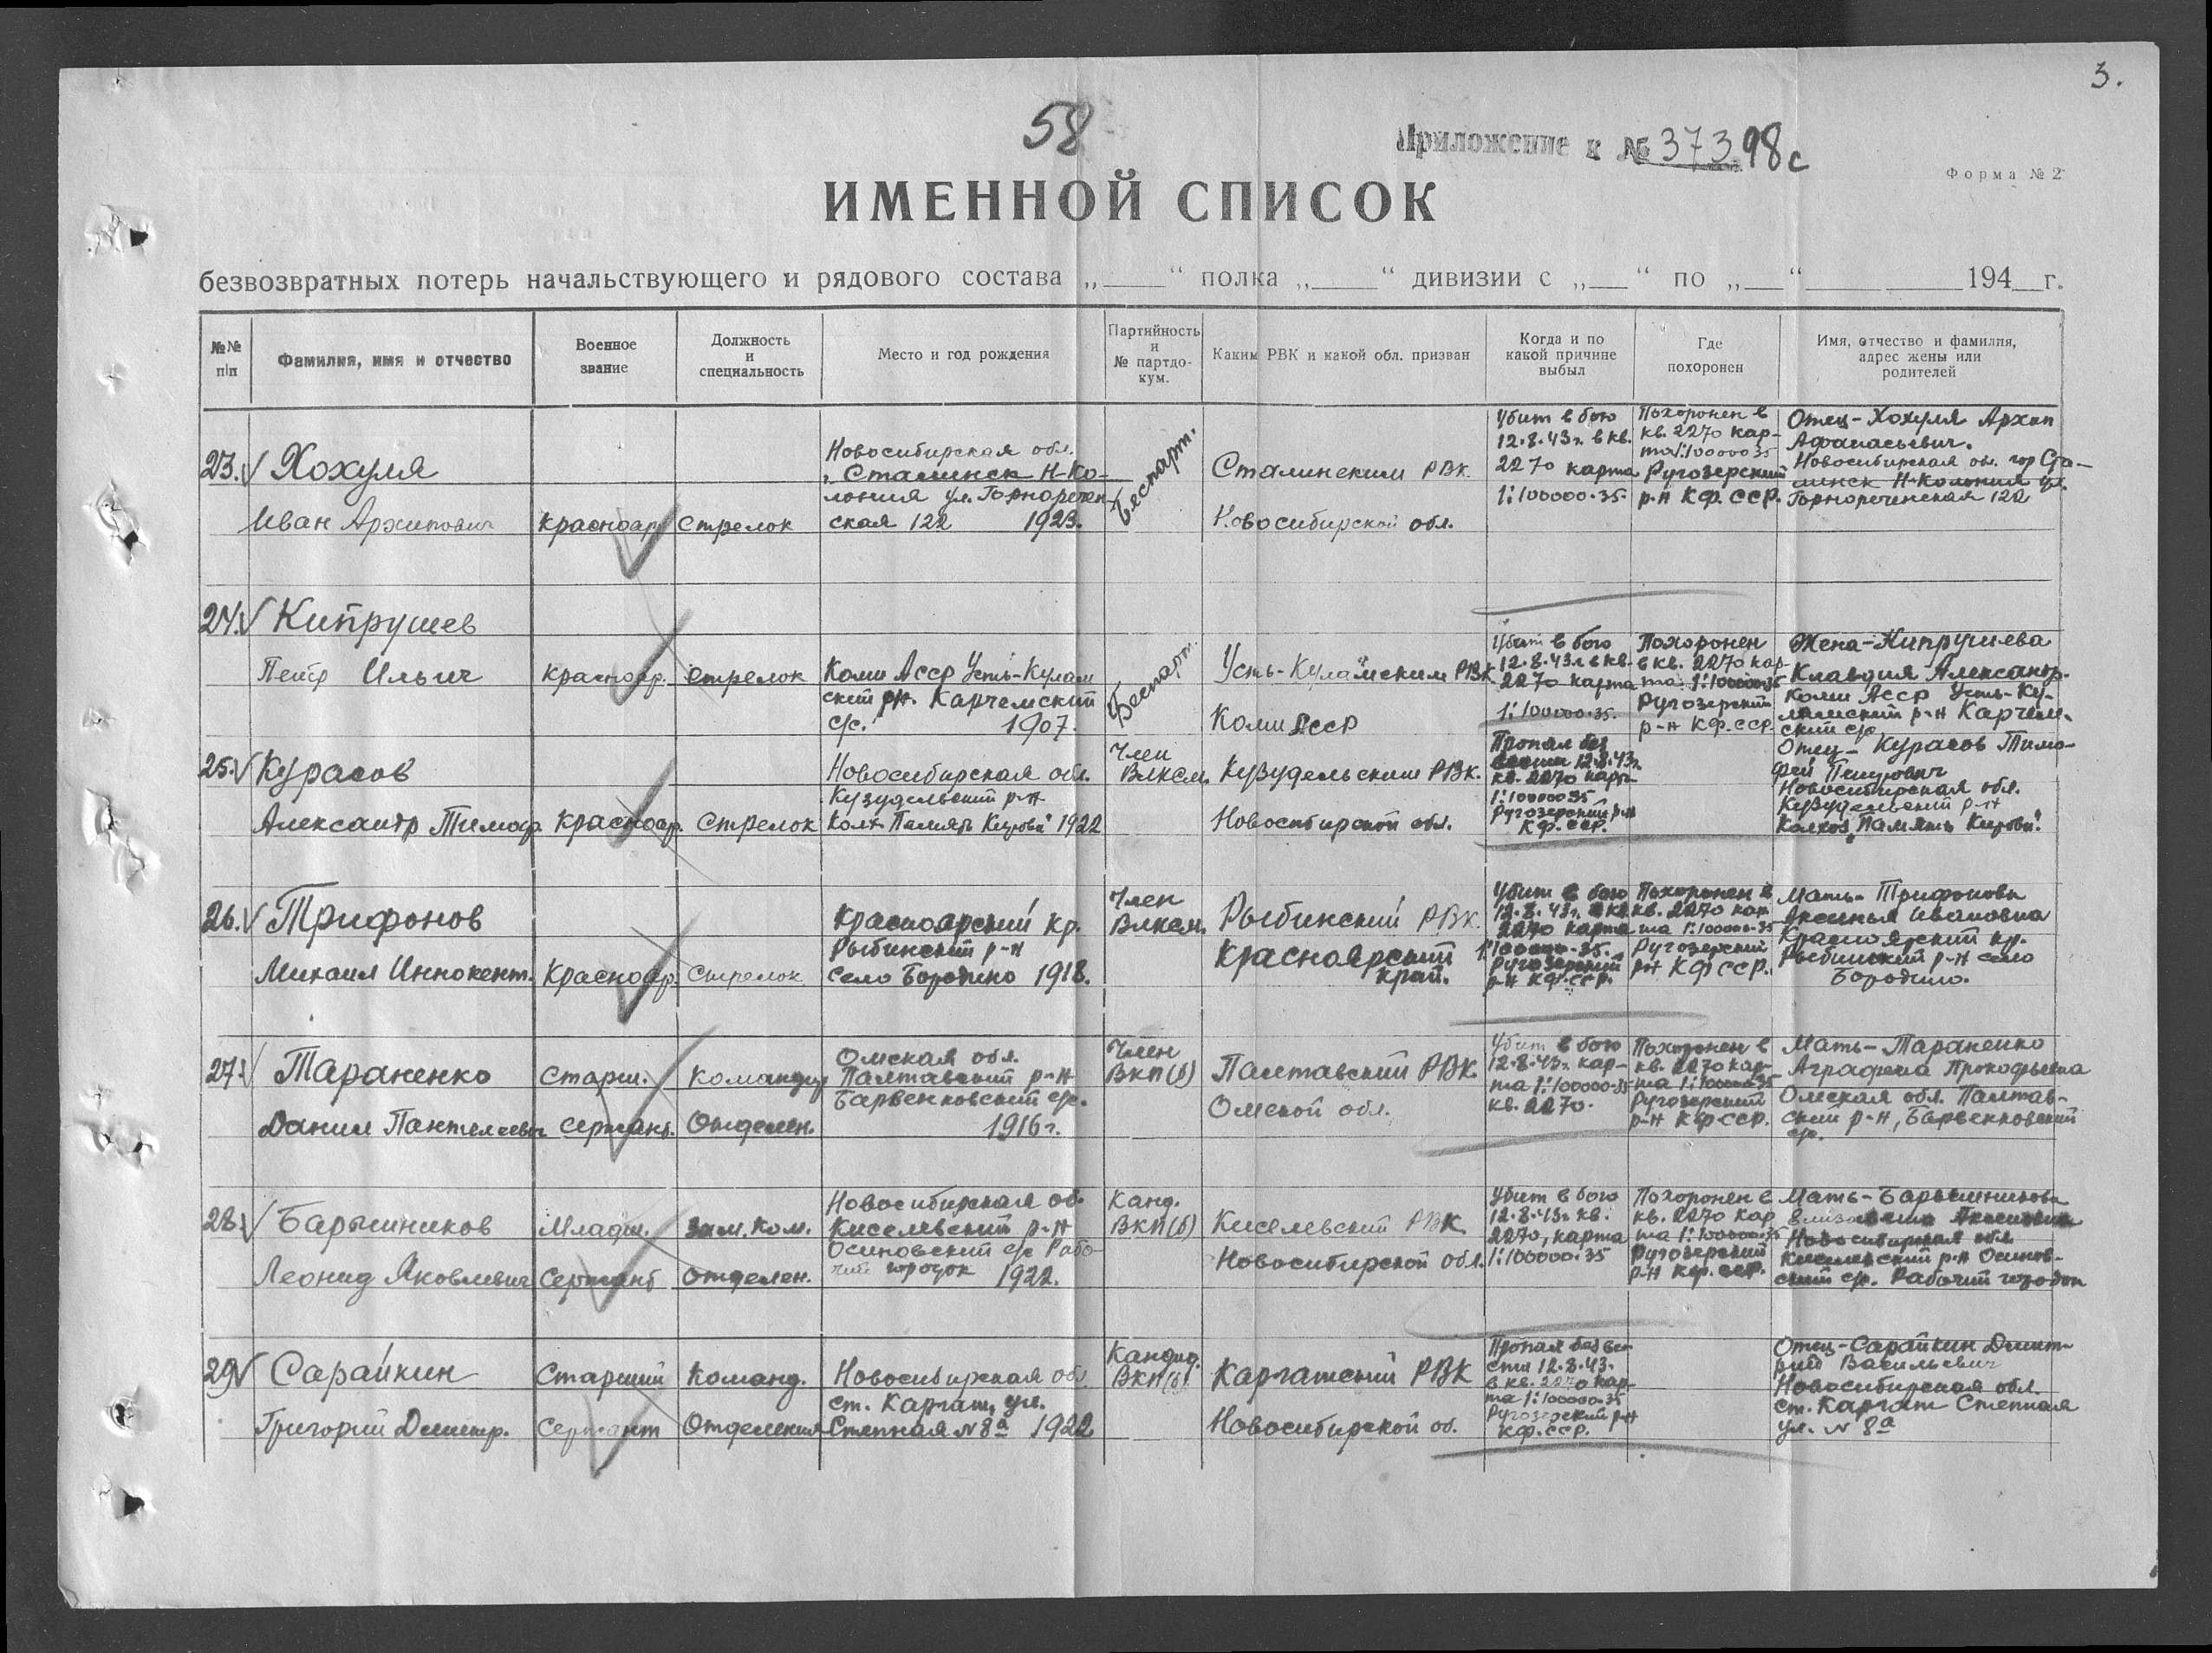 3.
58
Приложение к № 37398с
Форма № 2
ИМЕННОЙ СПИСОК
безвозвратных потерь начальствующего и рядового состава „ “ полка „ “ дивизии с „ “ по „ “ 194 г.
№№ п/п
Фамилия, имя и отчество
Военное звание
Должность и специальность
Место и год рождения
Партийность и № партдокум.
Каким РВК и какой обл. призван
Когда и по какой причине выбыл
Где похоронен
Имя, отчество и фамилия, адрес жены или родителей
23. Хохуля
Иван Архипович
Красноар.
Стрелок
Новосибирская обл.
г. Сталинск Н-Ко-
лония ул. Горноречен-
ская 122 1923.
Беспарт.
Сталинским РВК.
Новосибирской обл.
Убит в бою
12.8.43г. в кв.
2270 карта
1:100000-35.
Похоронен в
кв. 2270 кар-
та 1:100000 35
Ругозерский
р-н КФ. ССР.
Отец - Хохуля Архип
Афанасьевич.
Новосибирская обл. гор Ста-
линск Н-Колония ул.
Горнореченская 122
24. Кипрушев
Петр Ильич
Красноар.
Стрелок
Коми Асср Усть-Кулам
ский р-н. Карчемский
с/с. 1907.
Беспарт.
Усть-Куламским РВК
Коми АССР
Убит в бою
12.8.43г в кв.
2270 карта
1:100000-35.
Похоронен
в кв. 2270 кар-
та 1:100000-35
Ругозерский
р-н КФ.ССР.
Жена - Кипрушева
Клавдия Александр.
Коми Асср Усть-Ку-
ламский р-н Карчем-
ский с/с
25. Курасов
Александр Тимоф.
Красноар.
Стрелок
Новосибирская обл.
Кузудельский р-н
Колх Память Кирова" 1922
Член
Влксм.
Кузудельским РВК.
Новосибирской обл.
Пропал без
вести 12.8.43г.
кв. 2270 карт-
1:100000 35
Ругозерский р-н
КФ. ССР.
Отец - Курасов Тимо-
фей
Новосибирская обл.
Кузудельский р-н
Колхоз „Память Кирова".
26. Трифонов
Михаил Иннокент.
Красноар.
Стрелок
Красноярский кр.
Рыбинский р-н
село Бородино 1918.
Член
Влксм.
Рыбинский РВК.
Красноярский
край.
Убит в бою
12.8.43г. в кв
2270 карта
1:100000-35.
Ругозерский
р-н КФ.ССР.
Похоронен в
кв. 2270 кар-
та 1:100000-35
Ругозерский
р-н КФ ССР.
Мать - Трифонова
Аксинья Ивановна
Красноярский кр.
Рыбинский р-н село
Бородино.
27. Тараненко
Данил Пантелеевич
Старш.
сержант.
Командир
Отделен.
Омская обл.
Палтавский р-н
Барвенковский с/с.
1916г.
Член
ВКП(б)
Палтавский РВК
Омской обл.
Убит в бою
12.8.43г. кар-
та 1:100000-35
кв. 2270.
Похоронен в
кв. 2270 кар-
та 1:100000-35
Ругозерский
р-н КФ ССР.
Мать - Тараненко
Аграфена Прокофьевна
Омская обл. Палтав-
ский р-н, Барвенковский
с/с.
28. Барышников
Леонид Яковлевич
Младш.
Сержант
зам. ком.
отделен.
Новосибирская об.
Киселевский р-н
Осиновский с/с Рабо-
чий городок 1922.
Канд.
ВКП(б)
Киселевский РВК
Новосибирской обл.
Убит в бою
12.8.43г. кв.
2270, карта
1:100000-35
Похоронен в
кв. 2270 кар
та 1:100000-35
Ругозерский
р-н КФ. ССР.
Мать - Барышникова
Новосибирская обл
Киселевский р-н Осинов-
ский с/с. Рабочий городок
29 Сарайкин
Григорий Дмитр.
Старший
Сержант
Команд.
Отделения
Новосибирская об
ст. Каргат, ул.
Степная № 8а 1922
Кандид.
ВКП(б).
Каргатский РВК
Новосибирской об.
Пропал без ве-
сти 12.8.43.
в кв. 2270 кар-
та 1:100000-35
Ругозерский р-н
КФ. ССР.
Отец - Сарайкин Дмит-
рий Васильевич
Новосибирская обл.
ст. Каргат Степная
ул. № 8а